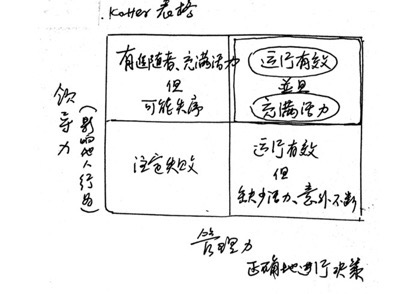 Kotter 表格
有追随者、充满活力
但
可能失序
运行有效
並且
充满活力
领导力
(影响他人行为)
注定失败
运行有效
但
缺少活力、意外不断
管理力
正确地进行决策